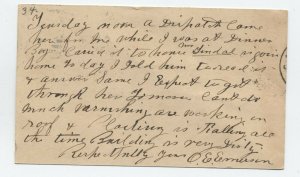 34
Tuesday noon a Dispatch Came
here for me while I was at Dinner
Boy Carried it to home
home to day I told him to read it
& answer Same I Expect to get
through here to morrow Cant do
much varnishing are working on
roof & is Rattling all
the time Building is very Dirty
Respectfully Yours C. E. Emerson